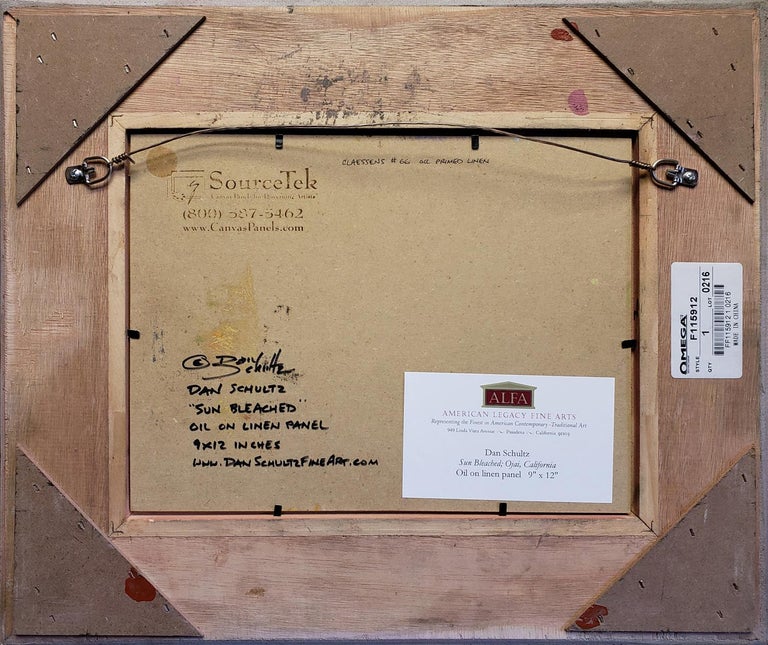 CLAESSENS #66 OIL PRIMED LINEN
SourceTek
Canvas Panels for Discerning Artists
(800) 587-5462
www.CanvasPanels.com
© Dan Schultz
DAN SCHULTZ
"SUN BLEACHED"
OIL ON LINEN PANEL
9X12 INCHES
WWW.DANSCHULTZFINEART.COM
ALFA
AMERICAN LEGACY FINE ARTS
Representing the Finest in American Contemporary-Traditional Art
949 Linda Vista Avenue ~ Pasadena ~ California 91103
Dan Schultz
Sun Bleached; Ojai, California
Oil on linen panel 9" x 12"
OMEGA
STYLE F115912
QTY 1 LOT 0216
FF115912 1 0216
MADE IN CHINA